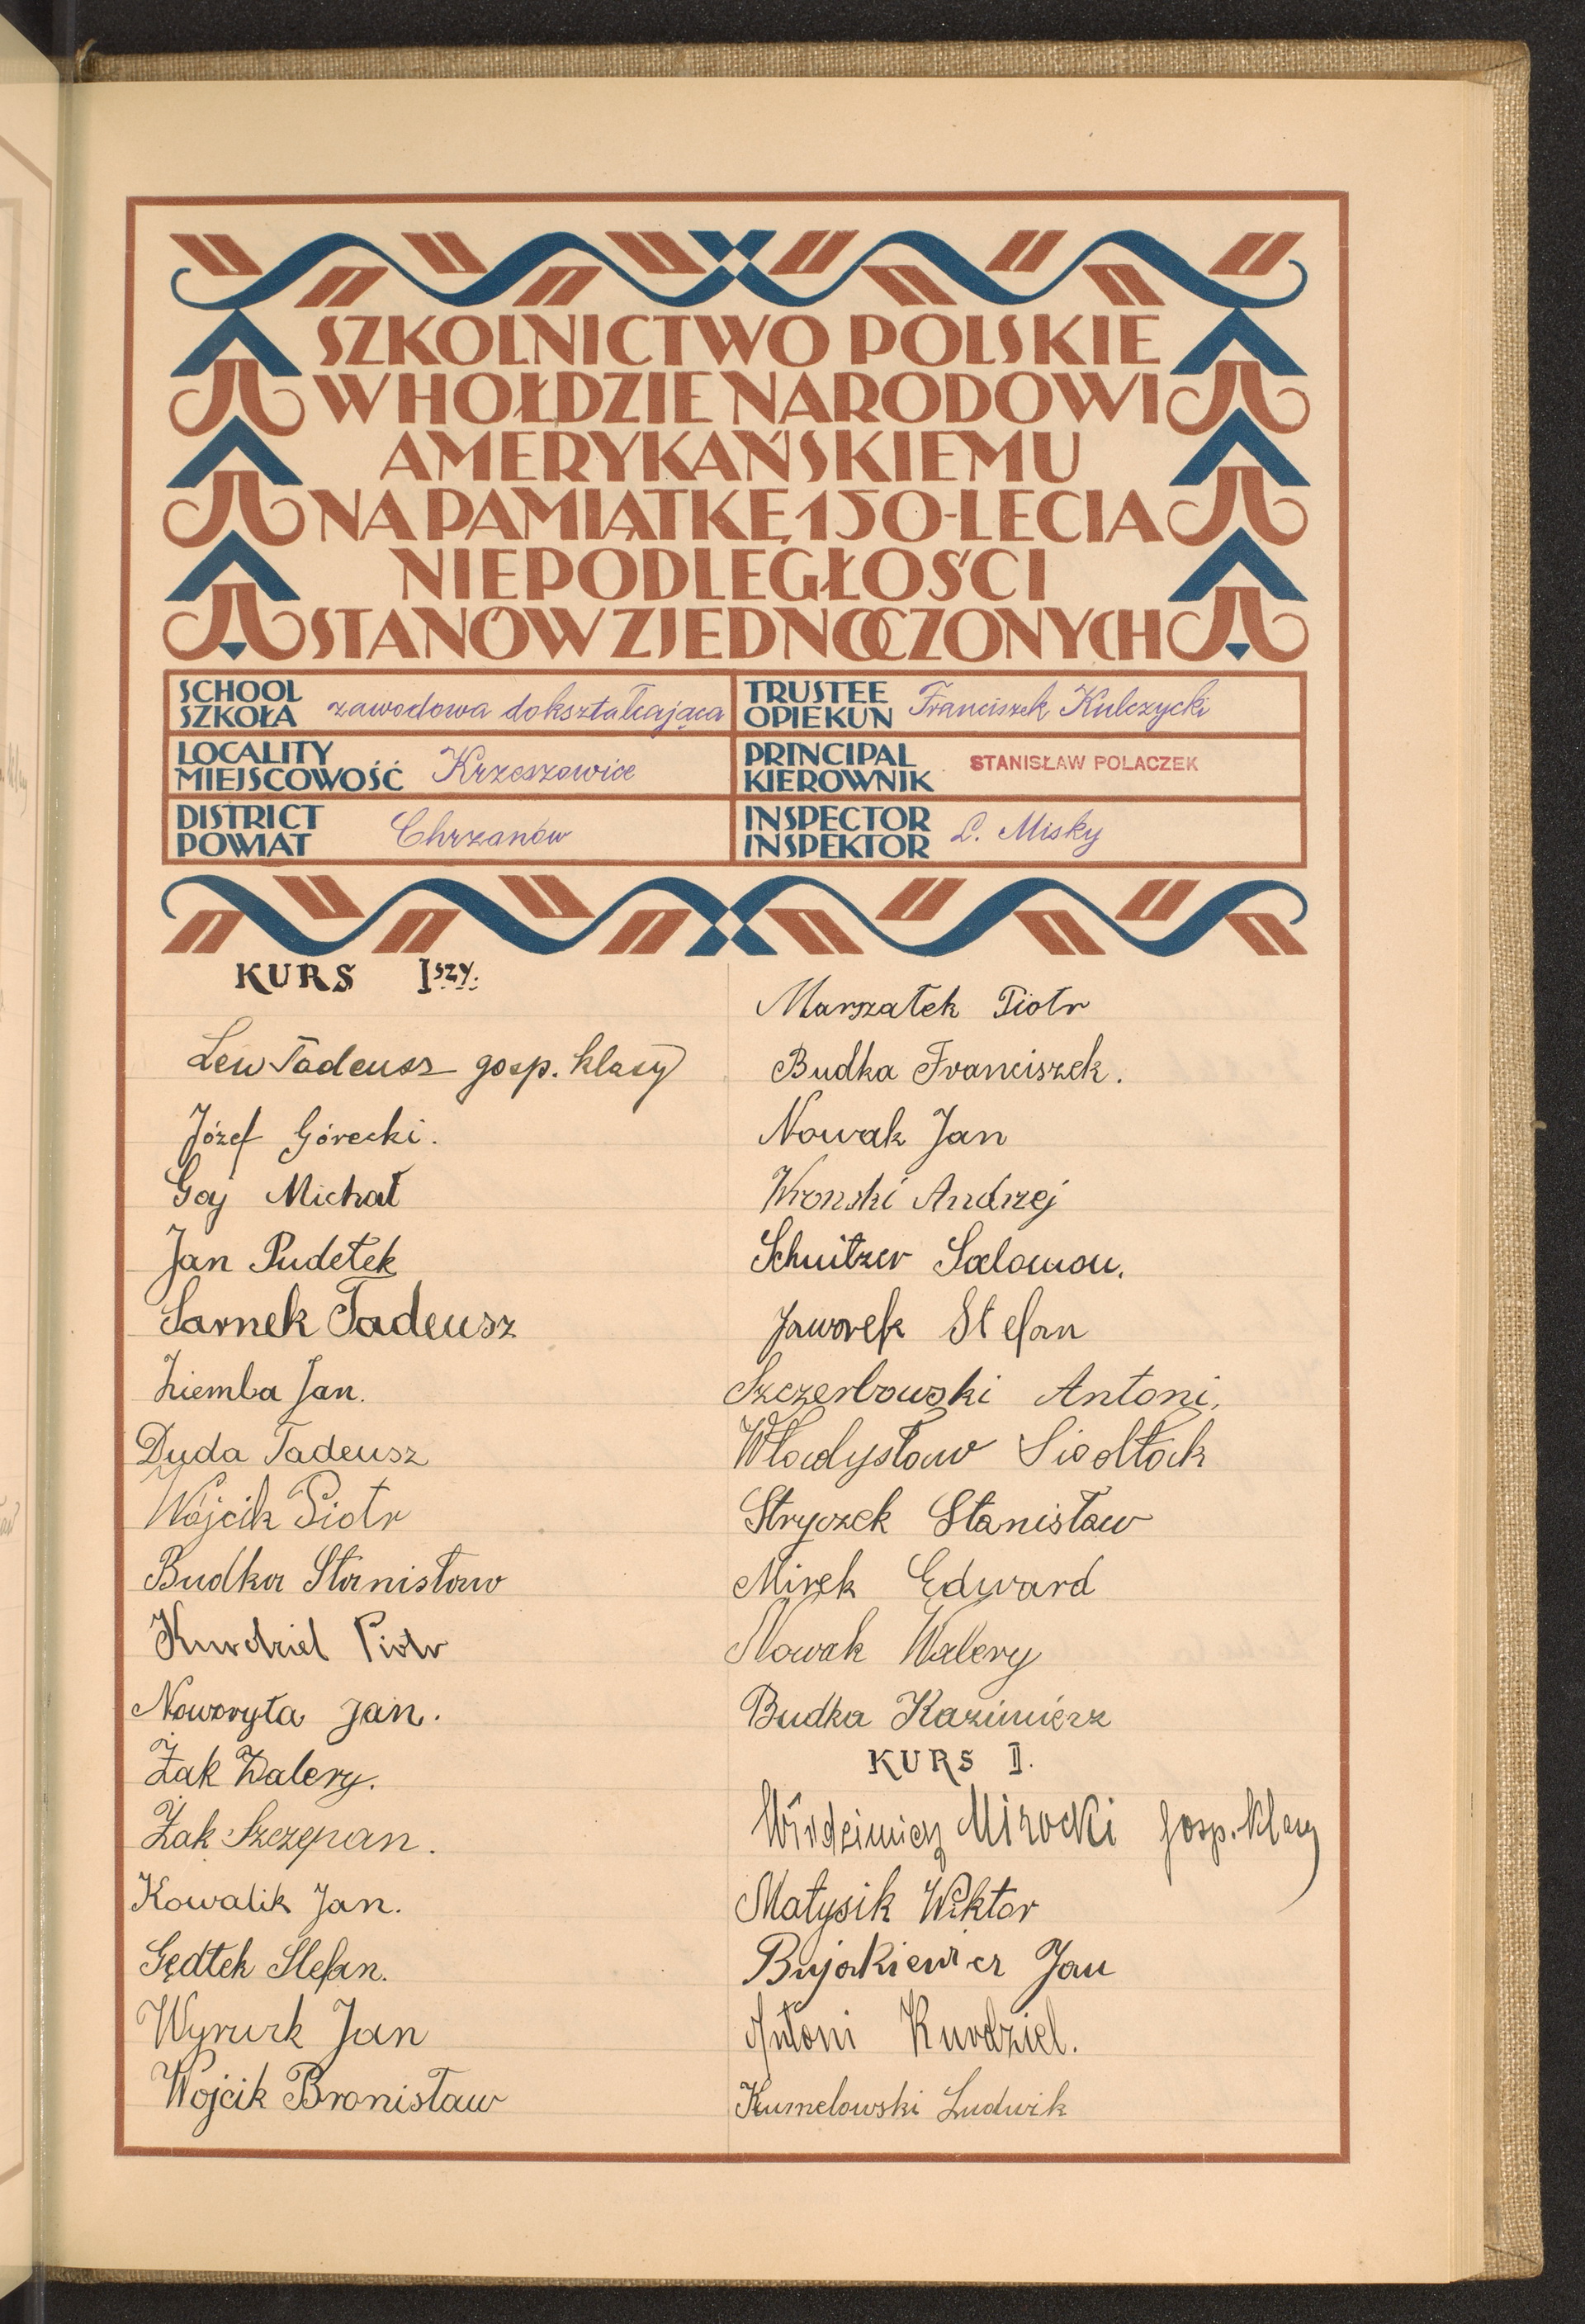 SZKOLNICTWO POLSKIE
W HOŁDZIE NARODOWI
AMERYKAŃSKIEMU
NA PAMIĄTKĘ 150-LECIA
NIEPODLEGŁOŚCI
STANÓW ZJEDNOCZONYCH
SCHOOL
SZKOŁA zawodowa dokształcająca
TRUSTEE
OPIEKUN Franciszek Kulczycki
LOCALITY
MIEJSCOWOŚĆ Krzeszowice
PRINCIPAL
KIEROWNIK STANISŁAW POLACZEK
DISTRICT
POWIAT Chrzanów
INSPECTOR
INSPEKTOR L. Misky
KURS Iszy.
Lew Tadeusz gosp. klasy
Józef Górecki.
Goj Michał
Jan Pudełek
Sarnek Tadeusz
Ziemba Jan.
Duda Tadeusz
Wójcik Piotr
Budka Stanisław
Kurdziel Piotr
Noworyta Jan.
Żak Walery.
Żak Szczepan.
Kowalik Jan.
Gędłek Stefan.
Jan
Wojcik Bronisław
Marszałek Piotr
Budka Franciszek.
Nowak Jan
Wronski Andrzej
Schnitzer Salomon.
Jaworek Stefan
Szczerbowski Antoni.
Władysław Siodłak
Stryczek Stanisław
Mirek Edward
Nowak Walery
Budka Kazimierz
KURS II.
Mirocki gosp. klasy
Matysik Wiktor
Bujakiewicz Jan
Antoni Kurdziel.
Kumelowski Ludwik